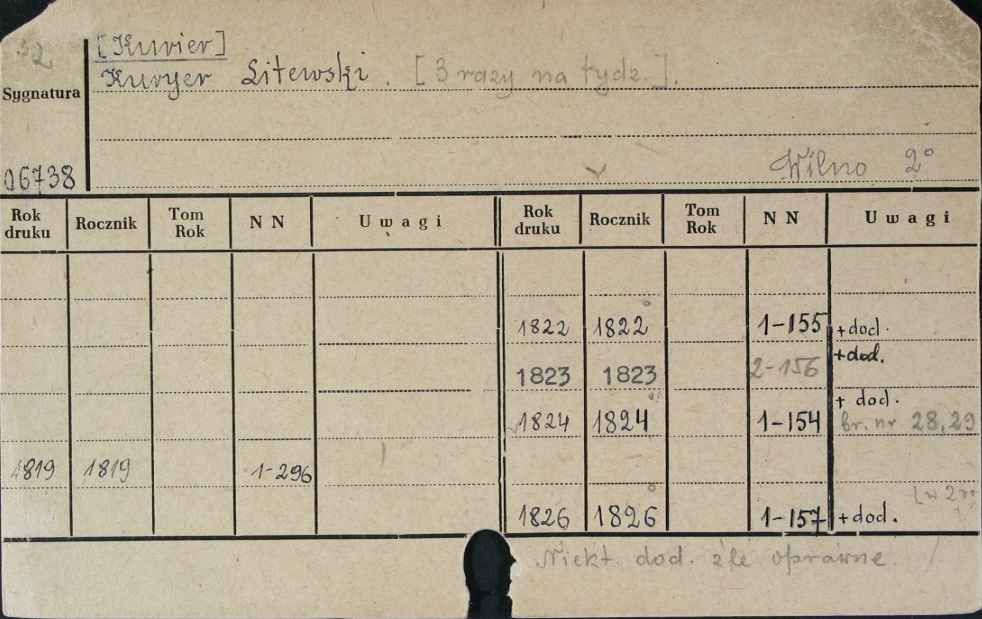 32
[Kurier]
Kuryer Litewski. [3 razy na tydz.].
Sygnatura
06738
Wilno 2°
Rok druku Rocznik Tom Rok NN Uwagi Rok druku Rocznik Tom Rok NN Uwagi
1822 1822° 1-155 +dod.
1823 1823 2-156 +dod.
1824 1824 1-154 + dod.
br. nr 28,29
1819 1819 1-296
1826 1826° 1-157 +dod.
Niekt. dod. źle oprawne.